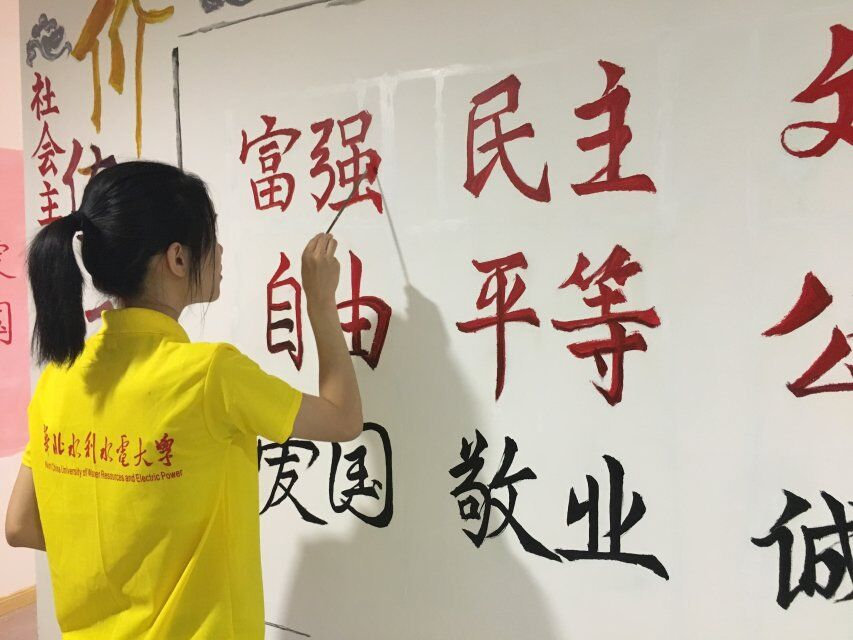 社会主
富强 民主 文
自由 平等 公
爱国 敬业 诚
华北水利水电大学
North China University of Water Resources and Electric Power